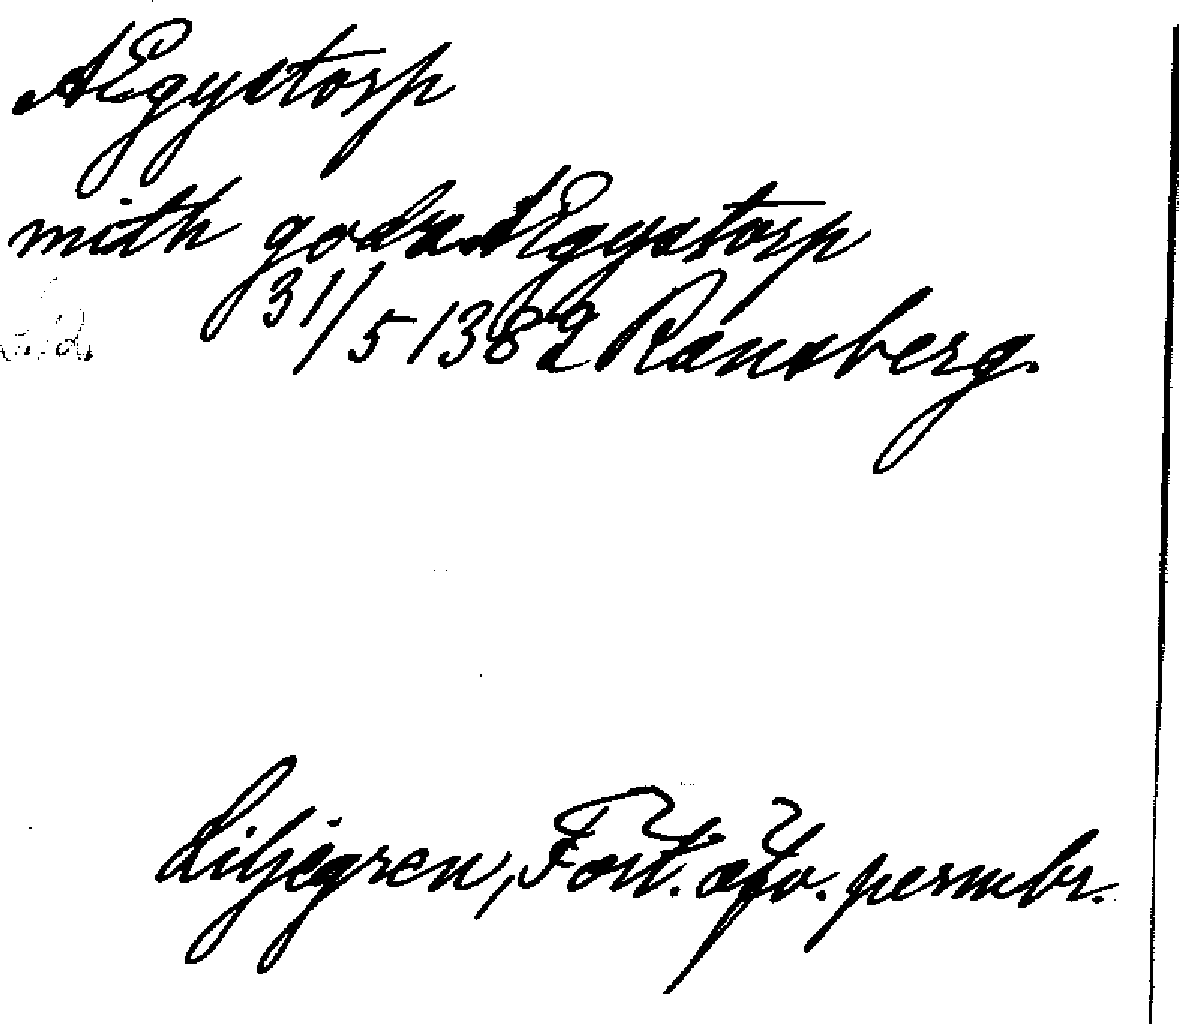 AEgystorp
mith godz AEgystorp
31/5 1382 Ransberg.
Liljegren, Fört. öfv. permbr.